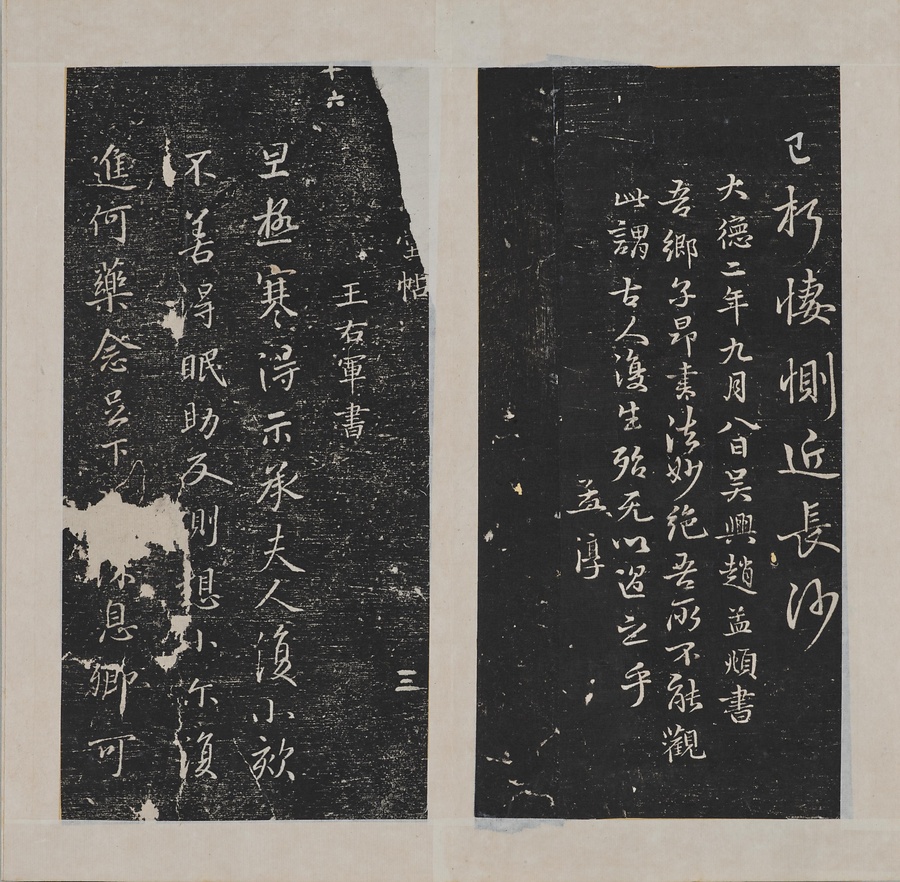 已朽悽惻近長沙
大德二年九月八日吳興趙孟頫書
吾鄉子昂書法妙絕吾所不能觀
此謂古人復生殆无以過之乎
孟淳
十六
帖
三
王右軍書
旦極寒得示承夫人復小欬
不善得眠助反則想小尔復
進何藥念足下息卿可